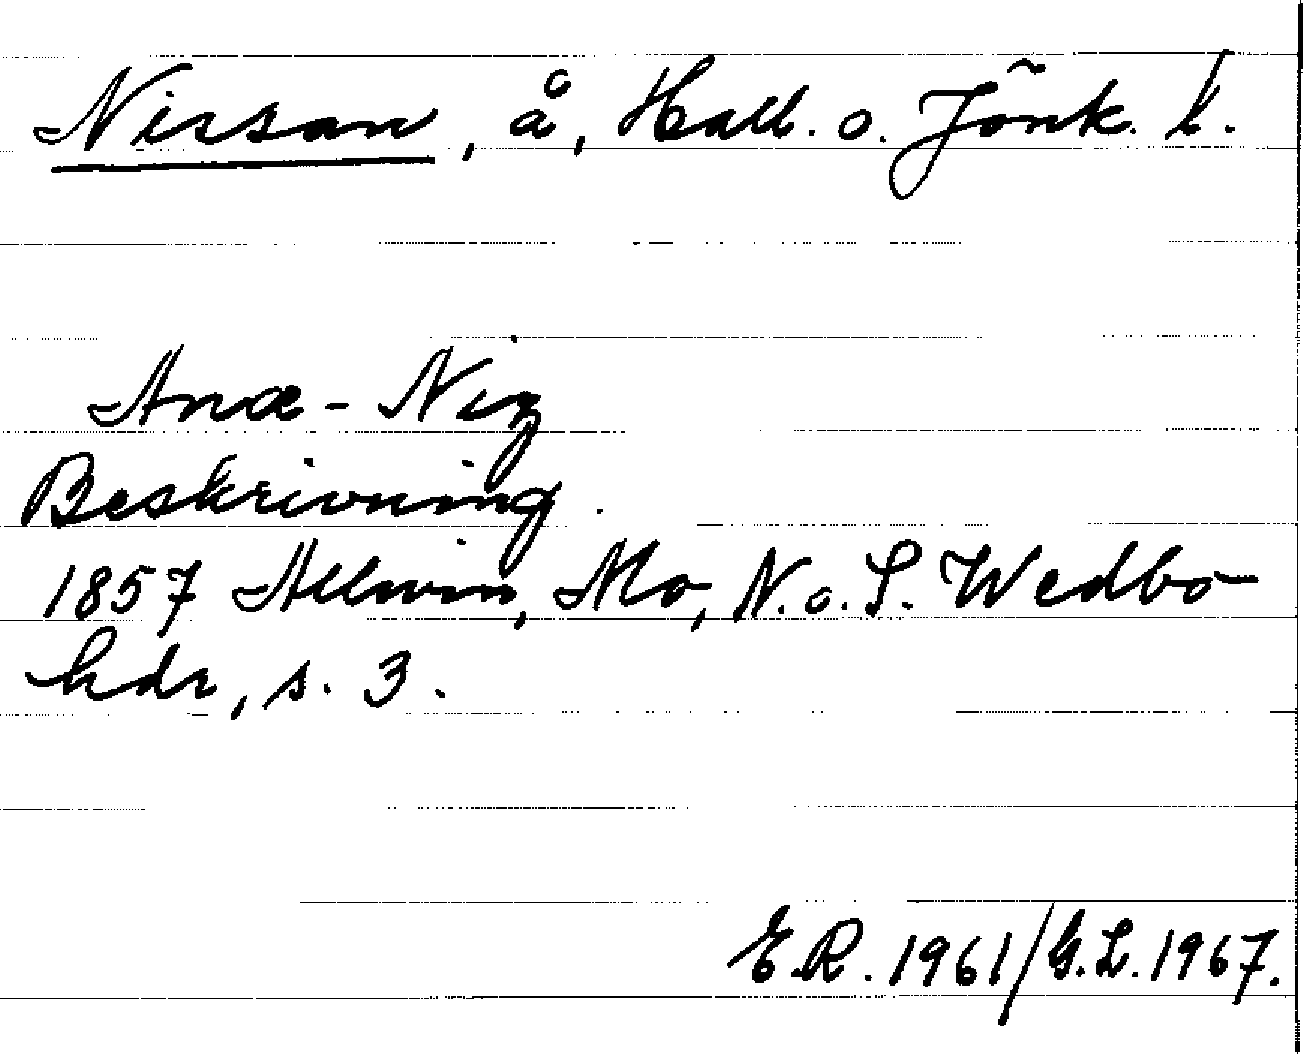 Nissan, å, Hall. o. Jönk. l.
Anæ-Niz
Beskrivning.
1857 Allvin, Mo, N. o. S. Wedbo
hdr, s. 3.
E.R. 1961/G.L. 1967.